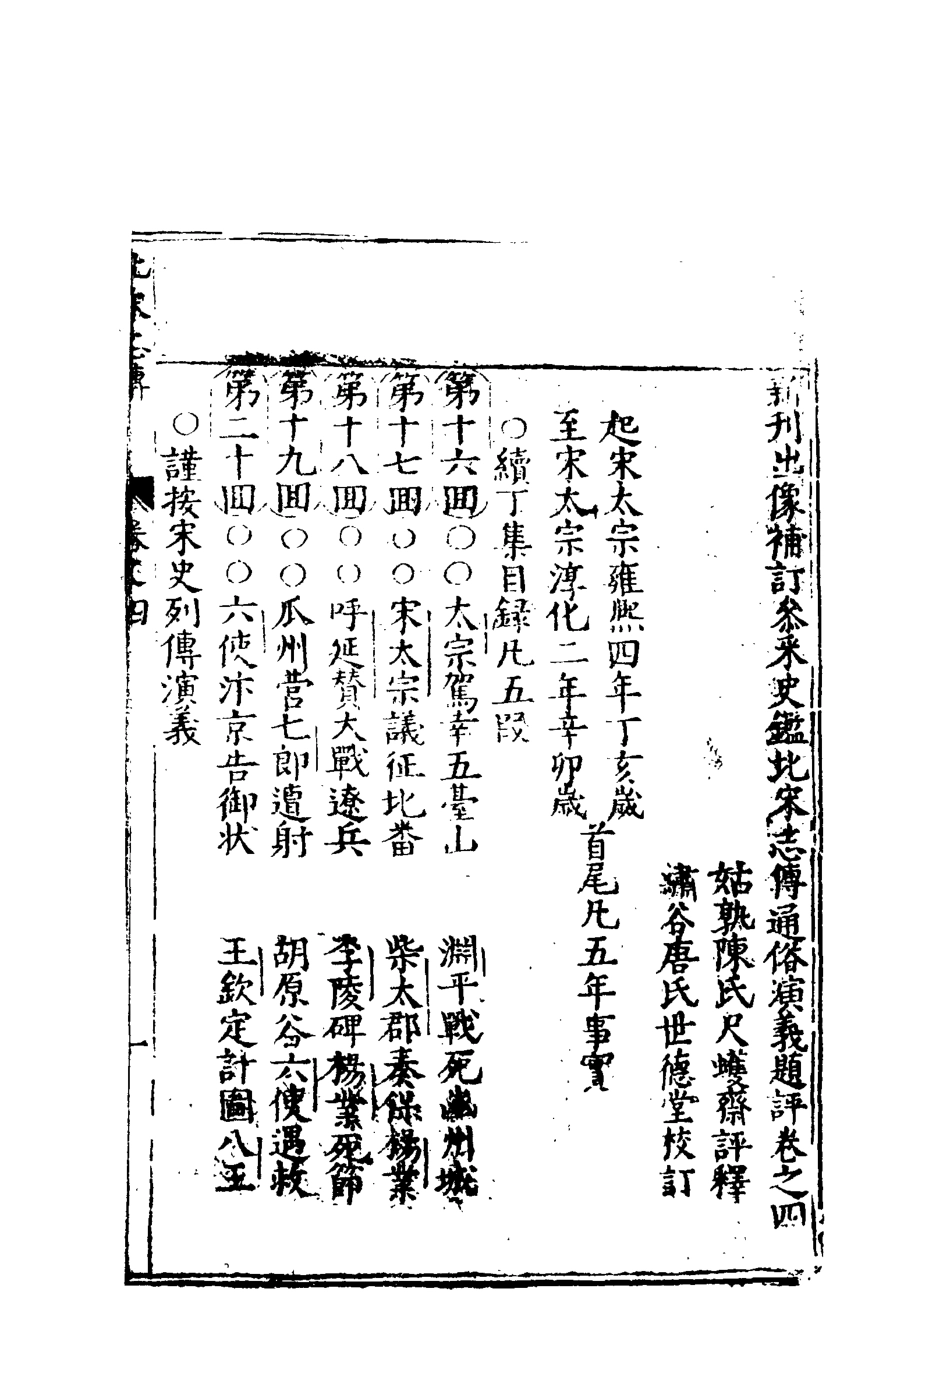 新刊出像補訂叅采史鑑北宋志傳通俗演義題評卷之四
姑孰陳氏尺蠖齋評釋
繡谷唐氏世德堂校訂
起宋太宗雍熙四年丁亥歲
至宋太宗淳化二年辛卯歲
首尾凡五年事實
○續丁集目録凡五段
第十六囬○○太宗駕幸五臺山 淵平戰死幽州城
第十七囬○○宋太宗議征北番 柴太郡奏保楊業
第十八囬○○呼延贊大戰遼兵 李陵碑楊業死節
第十九囬○○瓜州营七郎遭射 胡原谷六使遇救
第二十囬○○六使汴京告御状 王欽定計圖八王
○謹按宋史列傳演義
北宋志傳 卷之四 一